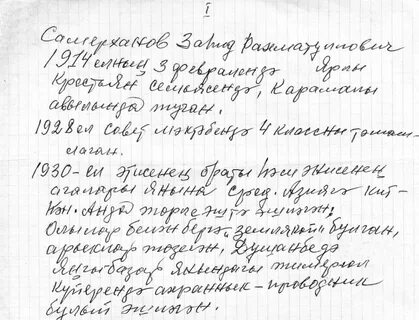 I
Самерханов Загид Рахматуллович
1914 елның 3 февралендә Ярлы
Крестьян семьясендә, Карамалы
авылында туган.
1928 ел совет мәктәбендә 4 классны тәмам-
лаган.
1930-ел әтисенең браты һәм әнисенең
агалары янына сред. Азиягә кит-
кән. Анда эштә эшләгән,
Олылар белән бергә "земляной" булган,
арыклар Душанбедә
Янгы базар якындагы
күперендә охранник-проводник
булып эшләгән.